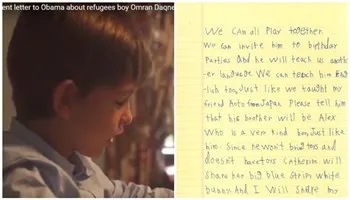 ent letter to Obama about refugees boy Omran Daqne
We can all play together
We can invite him to birthday
Parties and he will teach us anoth
er language. We can teach him Eng
lish too, just like we taught my
friend Aoto from Japan. Please tell him
that his brother will be Alex
Who is a very kind boy, just like
him. Since he won't bring toys and
doesn't have toys Catherine will
share her big blue stripy white
bunny. And I will share my